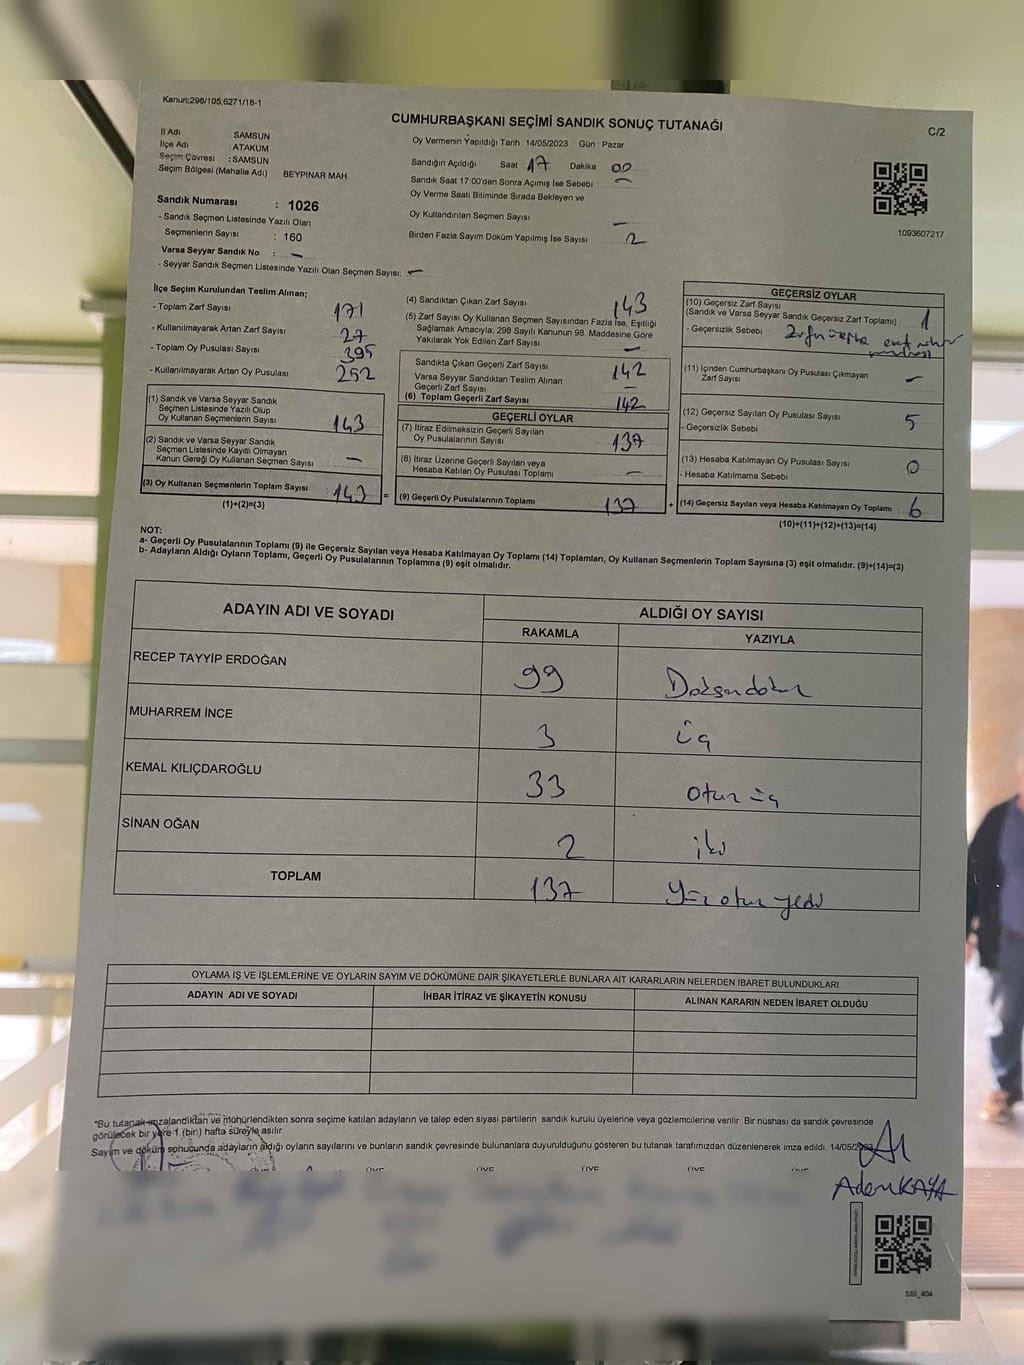 Kanun;298/105,6271/18-1
CUMHURBAŞKANI SEÇİMİ SANDIK SONUÇ TUTANAĞI
C/2
İl Adı SAMSUN
İlçe Adı ATAKUM
Seçim Çevresi : SAMSUN
Seçim Bölgesi (Mahalle Adı) BEYPINAR MAH.
Sandık Numarası : 1026
- Sandık Seçmen Listesinde Yazılı Olan
Seçmenlerin Sayısı : 160
Varsa Seyyar Sandık No : —
- Seyyar Sandık Seçmen Listesinde Yazılı Olan Seçmen Sayısı: —
Oy Vermenin Yapıldığı Tarih : 14/05/2023 Gün : Pazar
Sandığın Açıldığı Saat 17 Dakika 00
Sandık Saat 17:00'den Sonra Açımış İse Sebebi —
Oy Verme Saati Bitiminde Sırada Bekleyen ve
Oy Kullandırılan Seçmen Sayısı —
Birden Fazla Sayım Döküm Yapılmış İse Sayısı 2
1093607217
İlçe Seçim Kurulundan Teslim Alınan;
- Toplam Zarf Sayısı 171
- Kullanılmayarak Artan Zarf Sayısı 27
- Toplam Oy Pusulası Sayısı 395
- Kullanılmayarak Artan Oy Pusulası 252
(1) Sandık ve Varsa Seyyar Sandık
Seçmen Listesinde Yazılı Olup
Oy Kullanan Seçmenlerin Sayısı 143
(2) Sandık ve Varsa Seyyar Sandık
Seçmen Listesinde Kayıtlı Olmayan
Kanun Gereği Oy Kullanan Seçmen Sayısı —
(3) Oy Kullanan Seçmenlerin Toplam Sayısı 143 =
(1)+(2)=(3)
(4) Sandıktan Çıkan Zarf Sayısı 143
(5) Zarf Sayısı Oy Kullanan Seçmen Sayısından Fazla İse, Eşitliği
Sağlamak Amacıyla; 298 Sayılı Kanunun 98. Maddesine Göre
Yakılarak Yok Edilen Zarf Sayısı —
Sandıkta Çıkan Geçerli Zarf Sayısı 142
Varsa Seyyar Sandıktan Teslim Alınan
Geçerli Zarf Sayısı —
(6) Toplam Geçerli Zarf Sayısı 142
GEÇERLİ OYLAR
(7) İtiraz Edilmeksizin Geçerli Sayılan
Oy Pusulalarının Sayısı 137
(8) İtiraz Üzerine Geçerli Sayılan veya
Hesaba Katılan Oy Pusulası Toplamı —
(9) Geçerli Oy Pusulalarının Toplamı 137 +
GEÇERSİZ OYLAR
(10) Geçersiz Zarf Sayısı
(Sandık ve Varsa Seyyar Sandık Geçersiz Zarf Toplamı) 1
- Geçersizlik Sebebi
(11) İçinden Cumhurbaşkanı Oy Pusulası Çıkmayan
Zarf Sayısı —
(12) Geçersiz Sayılan Oy Pusulası Sayısı 5
- Geçersizlik Sebebi
(13) Hesaba Katılmayan Oy Pusulası Sayısı 0
- Hesaba Katılmama Sebebi
(14) Geçersiz Sayılan veya Hesaba Katılmayan Oy Toplamı 6
(10)+(11)+(12)+(13)=(14)
NOT:
a- Geçerli Oy Pusulalarının Toplamı (9) ile Geçersiz Sayılan veya Hesaba Katılmayan Oy Toplamı (14) Toplamları, Oy Kullanan Seçmenlerin Toplam Sayısına (3) eşit olmalıdır. (9)+(14)=(3)
b- Adayların Aldığı Oyların Toplamı, Geçerli Oy Pusulalarının Toplamına (9) eşit olmalıdır.
ADAYIN ADI VE SOYADI
ALDIĞI OY SAYISI
RAKAMLA YAZIYLA
RECEP TAYYİP ERDOĞAN 99 Doksandokuz
MUHARREM İNCE 3 üç
KEMAL KILIÇDAROĞLU 33 otuz üç
SİNAN OĞAN 2 iki
TOPLAM 137 Yüz otuz yedi
OYLAMA İŞ VE İŞLEMLERİNE VE OYLARIN SAYIM VE DÖKÜMÜNE DAİR ŞİKAYETLERLE BUNLARA AİT KARARLARIN NELERDEN İBARET BULUNDUKLARI
ADAYIN ADI VE SOYADI İHBAR İTİRAZ VE ŞİKAYETİN KONUSU ALINAN KARARIN NEDEN İBARET OLDUĞU
"Bu tutanak imzalandıktan ve mühürlendikten sonra seçime katılan adayların ve talep eden siyasi partilerin sandık kurulu üyelerine veya gözlemcilerine verilir. Bir nüshası da sandık çevresinde
görülecek bir yere 1 (bir) hafta süreyle asılır.
Sayım ve döküm sonucunda adayların aldığı oyların sayılarını ve bunların sandık çevresinde bulunanlara duyurulduğunu gösteren bu tutanak tarafımızdan düzenlenerek imza edildi. 14/05/2023
ÜYE ÜYE ÜYE ÜYE
Adem KAYA
SSI_404